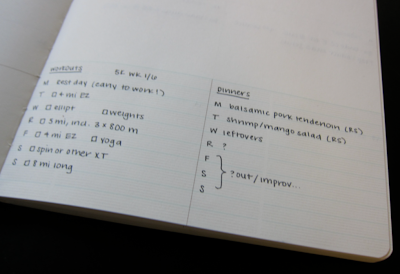 WORKOUTS
5K WK 1/6
M rest day (early to work!)
T 4 mi EZ
W ellipt weights
R 3 mi, incl. 3 x 800 m
F 4 mi EZ yoga
S spin or other XT
S 8 mi long
DINNERS
M balsamic pork tenderloin (RS)
T shrimp/mango salad (RS)
W leftovers
R ?
F
S ? out/improv...
S